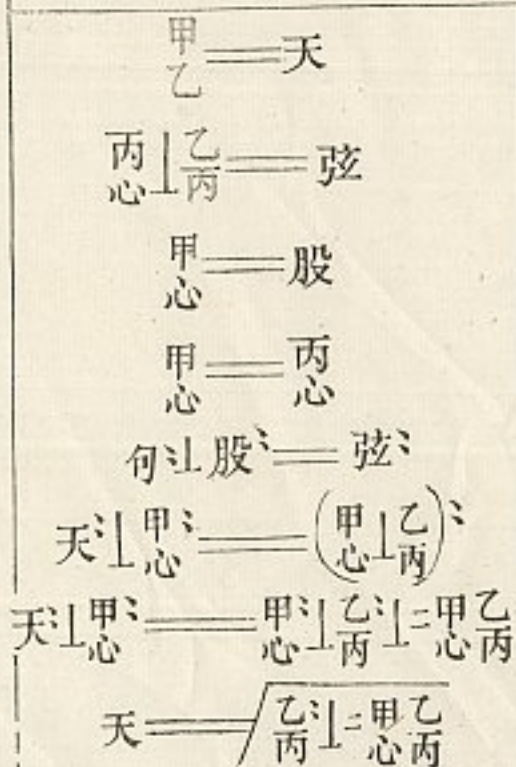 甲乙＝天
丙心⊥乙丙＝弦
甲心＝股
甲心＝丙心
句⼆⊥股⼆＝弦⼆
天⼆⊥甲心⼆＝(甲心⊥乙丙)⼆
天⼆⊥甲心⼆＝甲心⼆⊥乙丙⼆⊥二甲心乙丙
天＝√乙丙⼆⊥二甲心乙丙